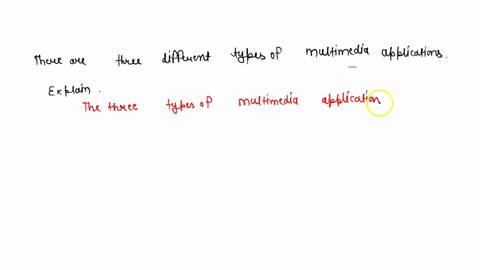 There are three different types of multimedia applications.
Explain.
The three types of multimedia application